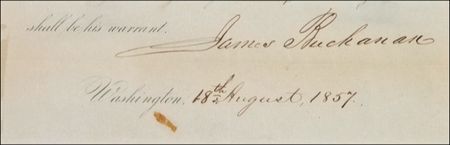 shall be his warrant.
James Buchanan
Washington, 18th August, 1857.